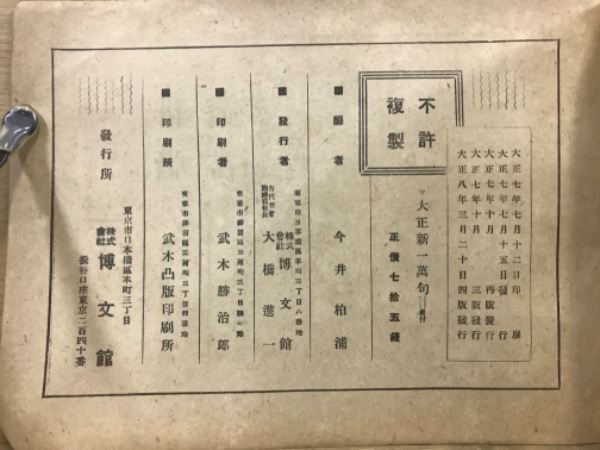 大正七年七月十二日印刷
大正七年七月十五日發行
大正七年十月再版發行
大正七年十月三版發行
大正八年三月二十日四版發行
不許
複製
大正新一萬句
正價七拾五錢
編者
今井柏浦
發行者
東京市日本橋區本町三丁目八番地
株式
會社
博文館
大橋進一
印刷者
武木勝治郎
印刷所
武木凸版印刷所
發行所
東京市日本橋區本町三丁目
株式
會社
博文館
振替口座東京二百四十番